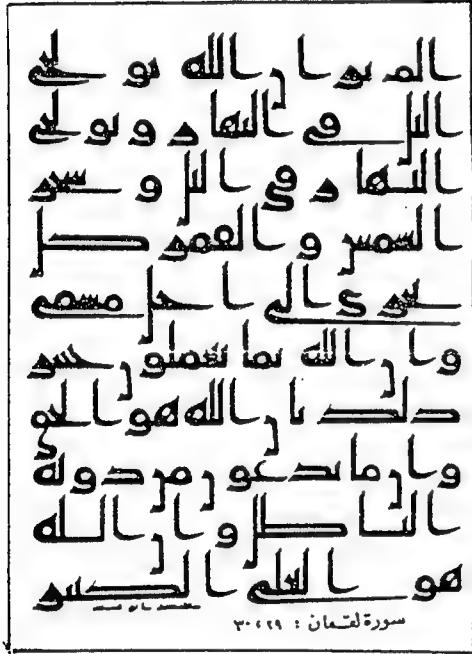 الم تر ان الله يولج
اليل في النهار و يولج
النهار في اليل و سخر
الشمس و القمر كل
يجري الى اجل مسمى
و ان الله بما تعملون خبير
ذلك بان الله هو الحق
و ان ما يدعون من دونه
الباطل و ان الله
هو العلي الكبير
سورة لقمان : ٢٩ ، ٣٠